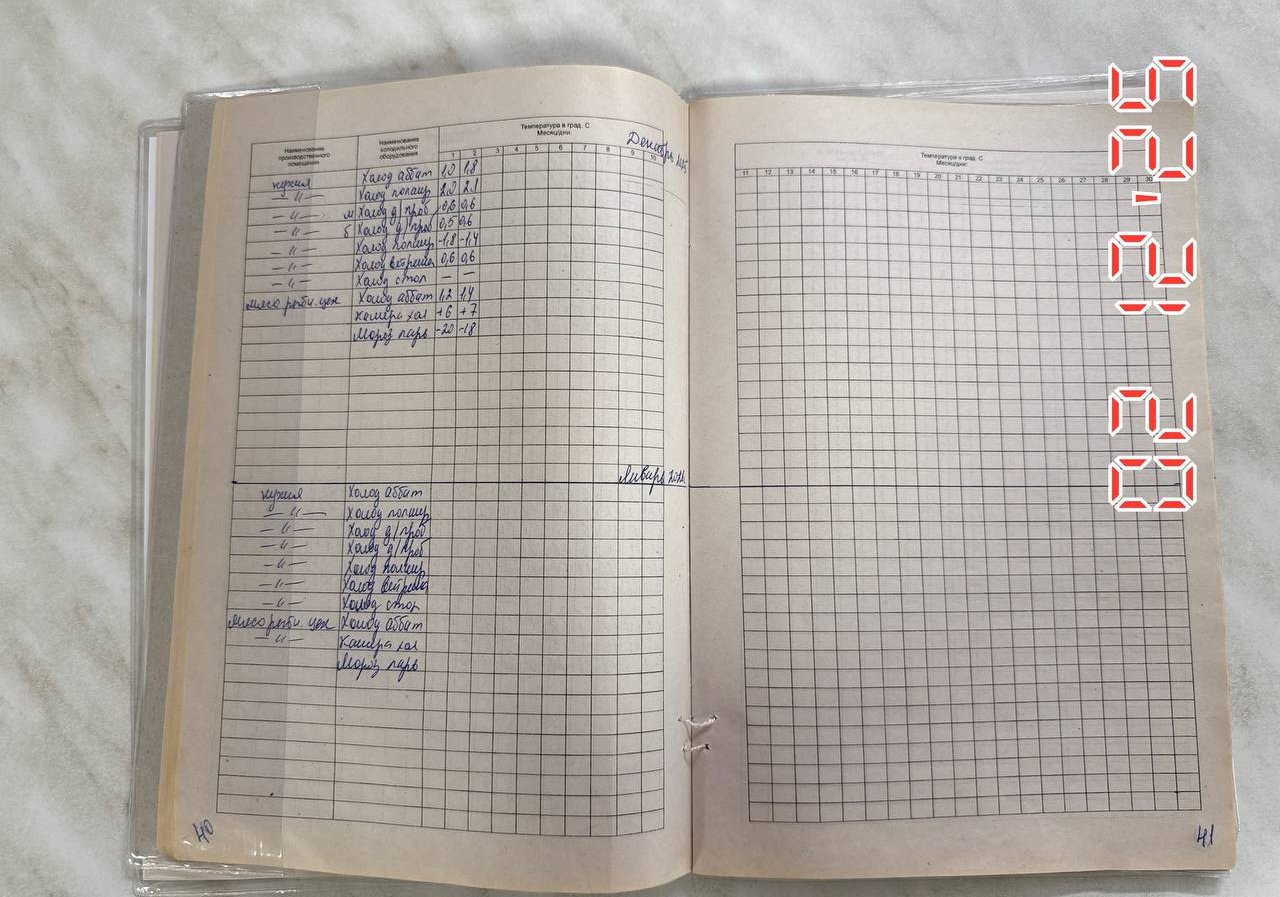 Наименование производственного помещения
Наименование холодильного оборудования
Температура в град. С
Месяц/дни
Декабрь
1 2 3 4 5 6 7 8 9 10
кухня Холод аббат 1,9 1,8
—"— Холод 2,0 2,1
—"— м Холод д/проб 0,6 0,6
—"— б Холод д/проб 0,5 0,6
—"— Холод -1,8 -1,4
—"— Холод 0,6 0,6
—"— Холод стол — —
мясо рыбн. цех Холод аббат 1,2 1,4
Камера хол +6 +7
Мороз ларь -20 -18
Январь
кухня Холод аббат
—"— Холод
—"— Холод д/проб
—"— Холод д/проб
—"— Холод
—"— Холод
—"— Холод стол
мясо рыбн. цех Холод аббат
—"— Камера хол
Мороз ларь
40
Температура в град. С
Месяц/дни
11 12 13 14 15 16 17 18 19 20 21 22 23 24 25 26 27 28 29 30
41
02 12 '25